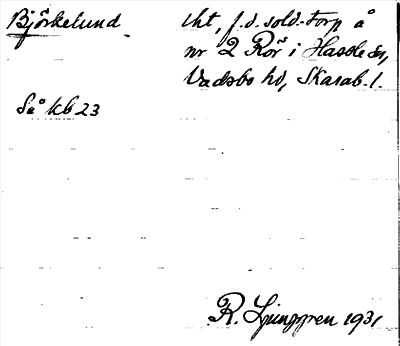 Björkelund lht, f.d. sold.-torp å
nr 2 Rör i Hassle sn,
Vadsbo hd, Skarab. l.
Så kb 23
R. Ljunggren 1931